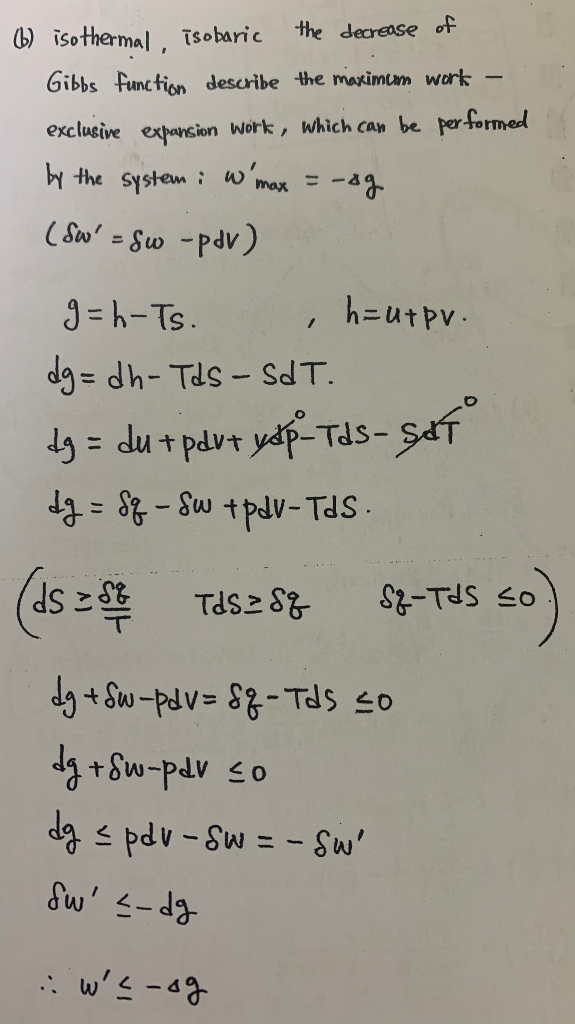 (b) isothermal, isobaric the decrease of
Gibbs function describe the maximum work -
exclusive expansion work, which can be performed
by the system : w'max = -Δg
(δw' = δw - pdv)
g = h - Ts. , h = u + pv.
dg = dh - Tds - SdT.
dg = du + pdv + vdp⁰ - Tds - SdT⁰
dg = δq - δw + pdv - Tds.
(ds ≥ δq/T Tds ≥ δq δq - Tds ≤ 0)
dg + δw - pdv = δq - Tds ≤ 0
dg + δw - pdv ≤ 0
dg ≤ pdv - δw = - δw'
δw' ≤ - dg
∴ w' ≤ - Δg